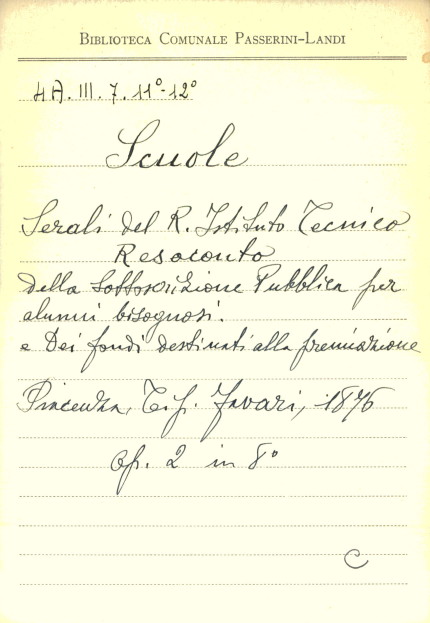 BIBLIOTECA COMUNALE PASSERINI-LANDI
4A. III. 7. 11°-12°
Scuole
Serali del R. Istituto Tecnico
Resoconto
della sottoscrizione Pubblica per
alunni bisognosi.
e Dei fondi destinati alla premiazione
Piacenza, Tip. Favari, 1876
op. 2 in 8°
C